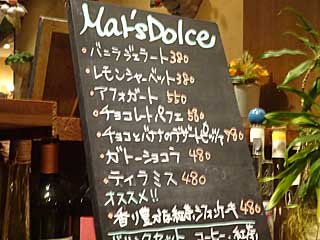 Mar'sDolce
・バニラジェラート380
・レモンシャーベット380
・アフォガート 550
・チョコレートパフェ 580
・チョコとバナナのデザートピッツァ 780
・ガトーショコラ 480
・ティラミス 480
オススメ!!
・香り豊かな紅茶シフォンケーキ 480
ドリンクセット コーヒー・紅茶